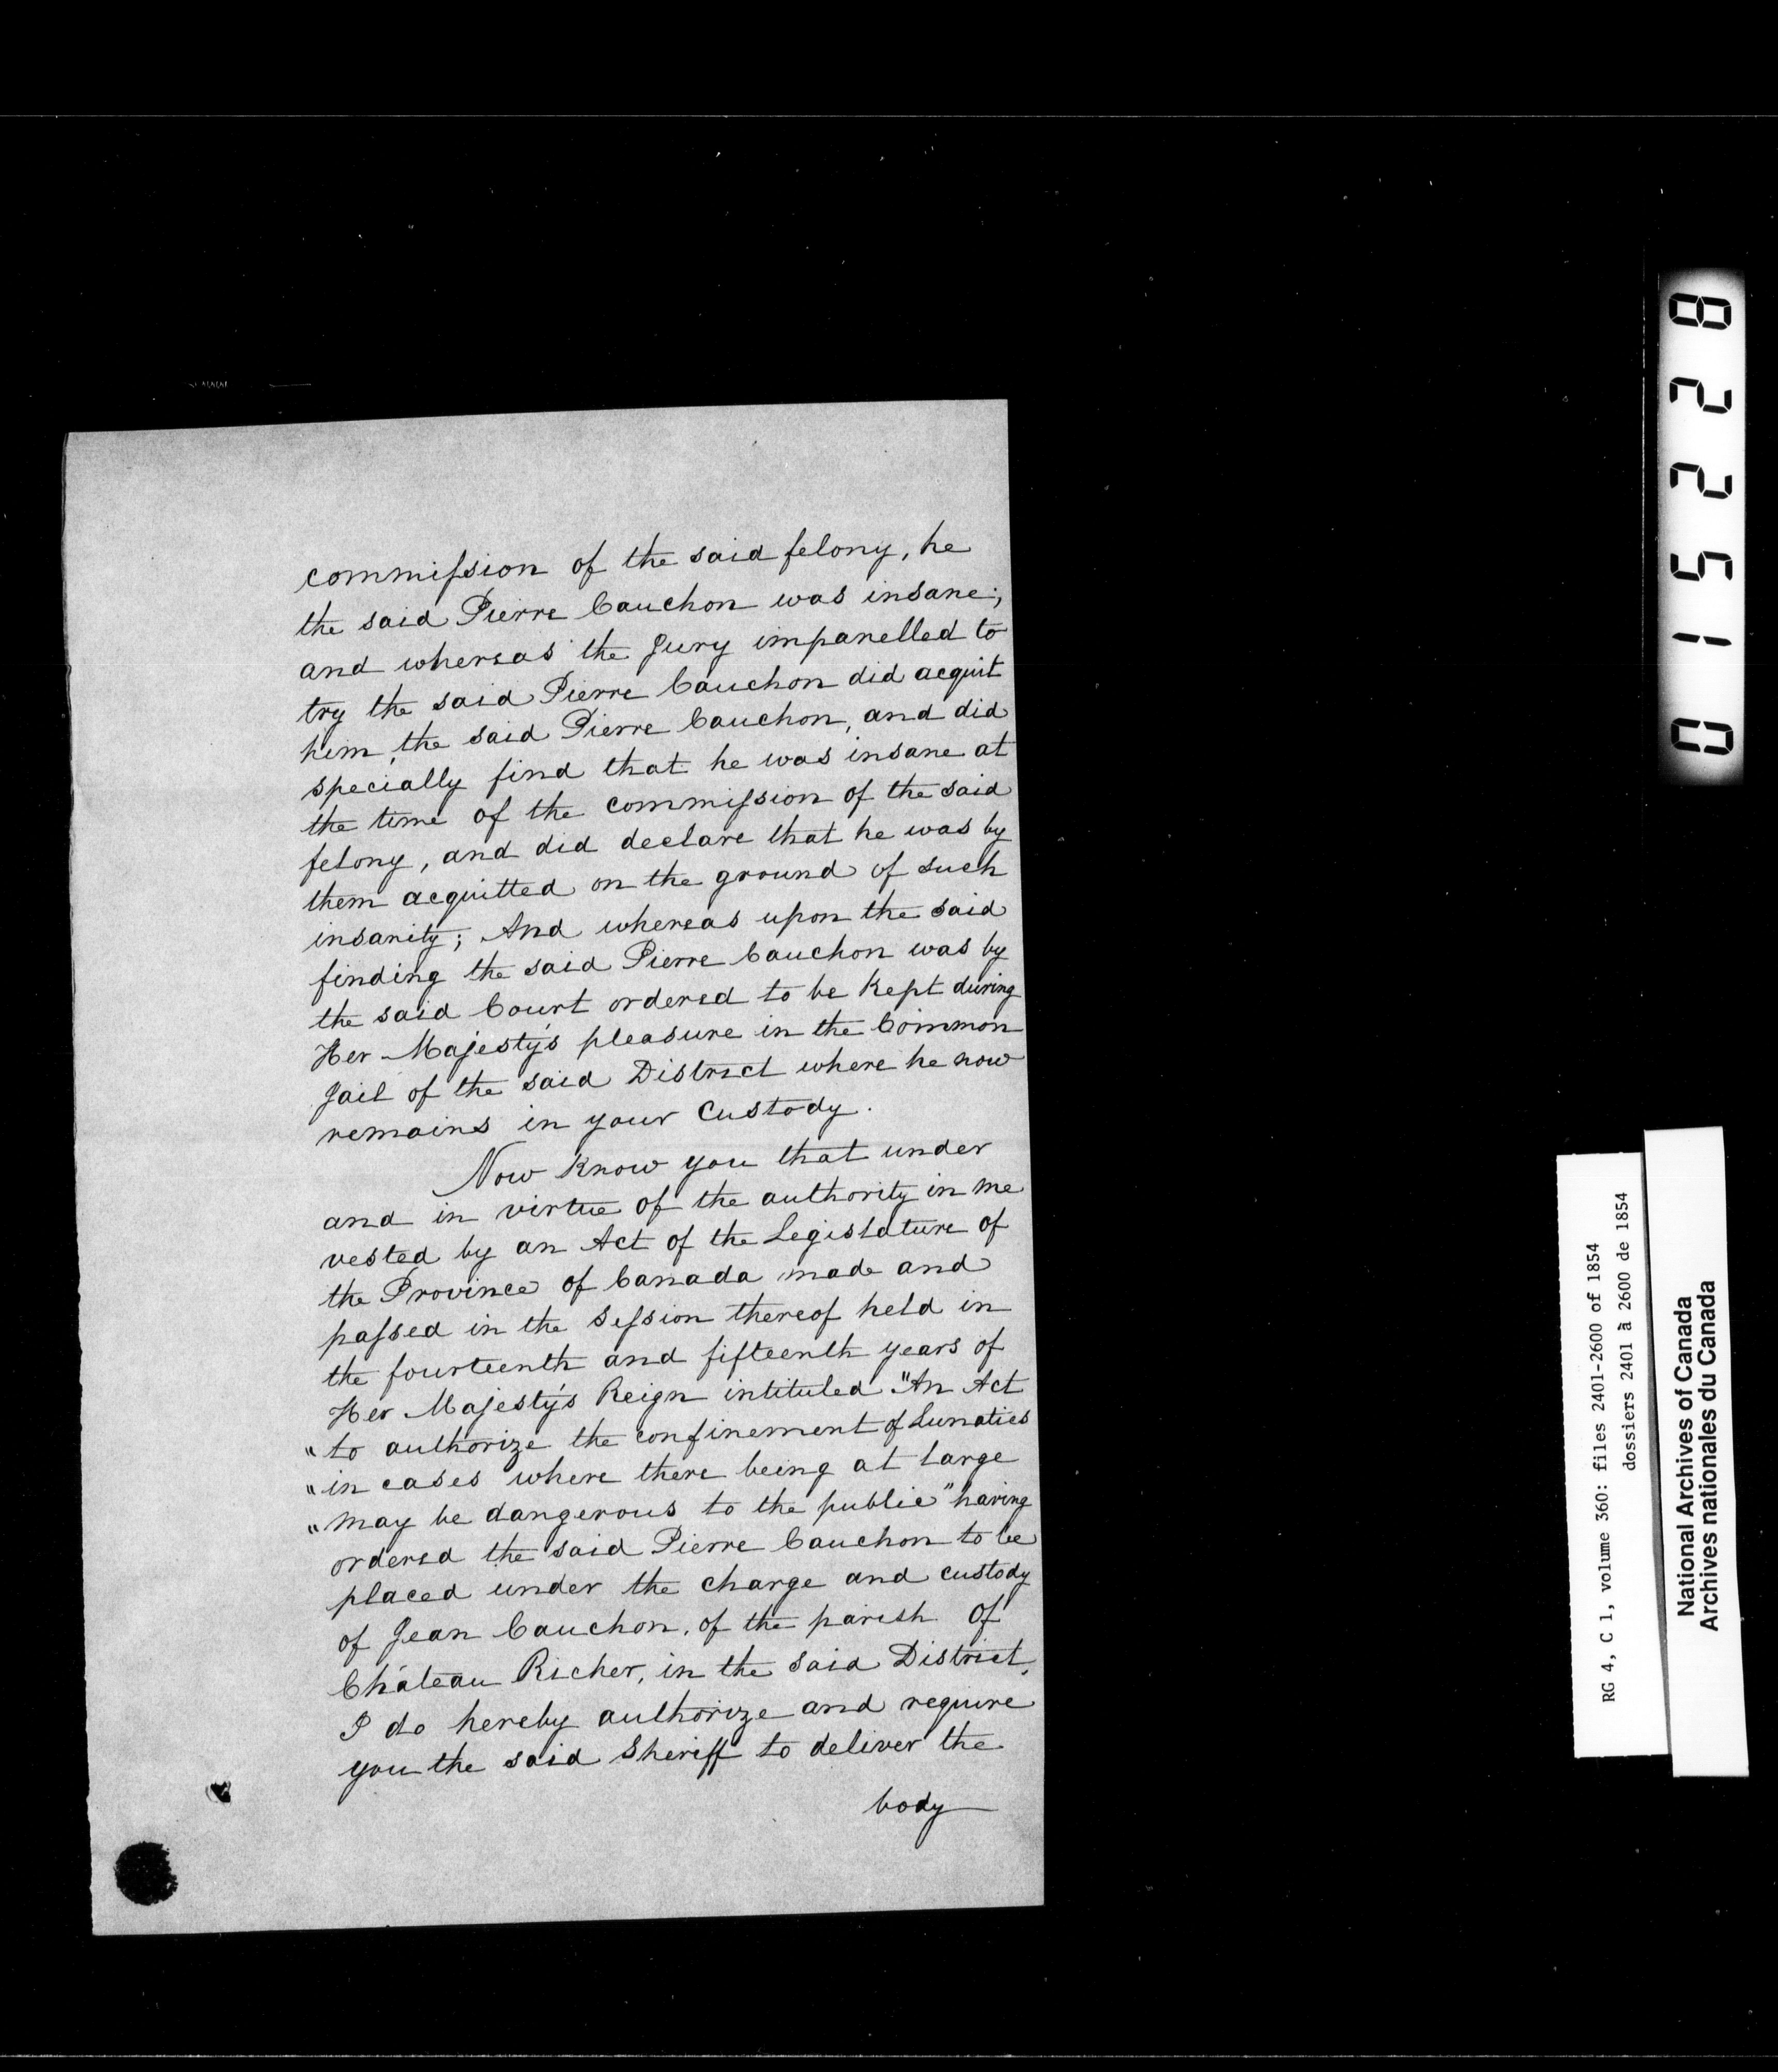 commission of the said felony, he
the said Pierre Cauchon was insane;
and whereas the Jury impanelled to
try the said Pierre Cauchon did acquit
him, the said Pierre Cauchon, and did
specially find that he was insane at
the time of the commission of the said
felony, and did declare that he was by
them acquitted on the ground of such
insanity; And whereas upon the said
finding the said Pierre Cauchon was by
the said Court ordered to be kept during
Her Majesty's pleasure in the Common
Jail of the said District where he now
remains in your Custody.
Now know you that under
and in virtue of the authority in me
vested by an Act of the Legislature of
the Province of Canada made and
passed in the Session thereof held in
the fourteenth and fifteenth years of
Her Majesty's Reign intituled "An Act
"to authorize the confinement of Lunatics
"in cases where there being at large
"may be dangerous to the public" having
ordered the said Pierre Cauchon to be
placed under the charge and custody
of Jean Cauchon, of the parish of
Château Richer, in the said District,
I do hereby authorize and require
you the said Sheriff to deliver the
body
015228
RG 4, C 1, volume 360: files 2401-2600 of 1854
dossiers 2401 à 2600 de 1854
National Archives of Canada
Archives nationales du Canada